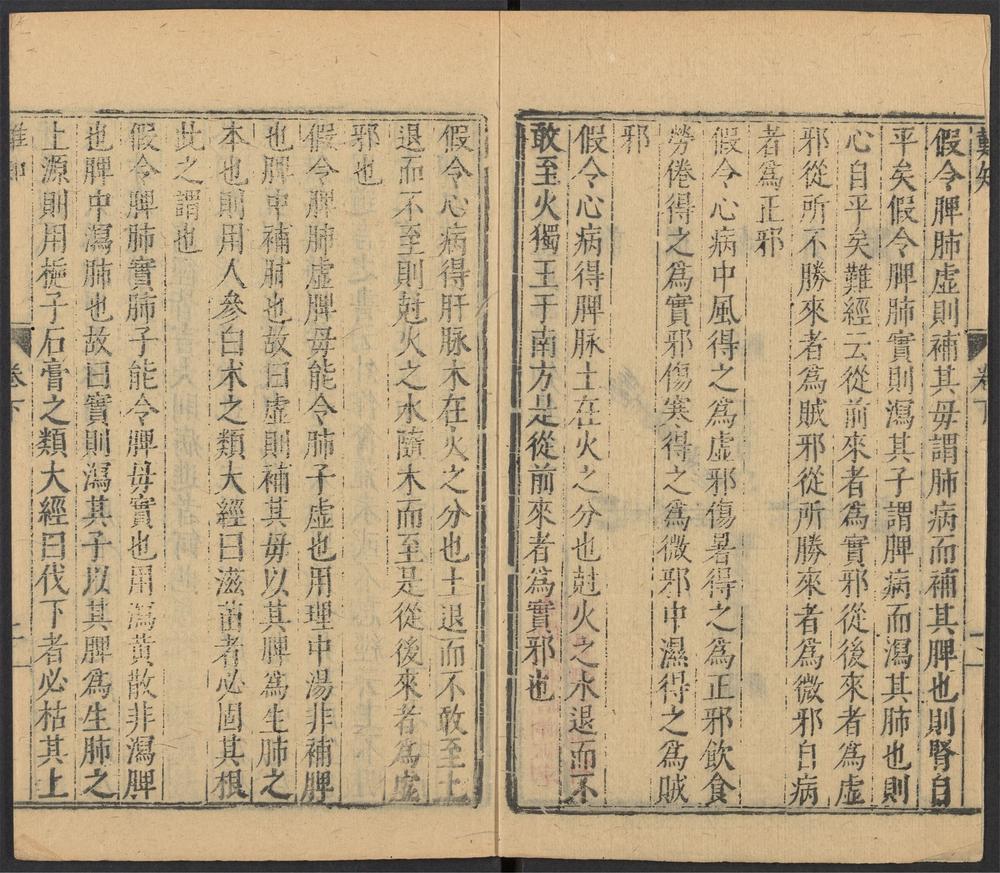 難知
卷下
假令脾肺虛則補其母謂肺病而補其脾也則腎自
平矣假令脾肺實則瀉其子謂脾病而瀉其肺也則
心自平矣難經云從前來者為實邪從後來者為虛
邪從所不勝來者為賊邪從所勝來者為微邪自病
者為正邪
假令心病中風得之為虛邪傷暑得之為正邪飲食
勞倦得之為實邪傷寒得之為微邪中濕得之為賊
邪
假令心病得脾脉土在火之分也尅火之水退而不
敢至火獨王于南方是從前來者為實邪也
假令心病得肝脉木在火之分也土退而不敢至土
退而不至則尅火之水隨木而至是從後來者為虛
邪也
假令脾肺虛脾母能令肺子虛也用理中湯非補脾
也脾中補肺也故曰虛則補其母以其脾為生肺之
本也則用人參白术之類大經曰滋苗者必固其根
此之謂也
假令脾肺實肺子能令脾母實也用瀉黃散非瀉脾
也脾中瀉肺也故曰實則瀉其子以其脾為生肺之
上源則用梔子石膏之類大經曰伐下者必枯其上
卷下